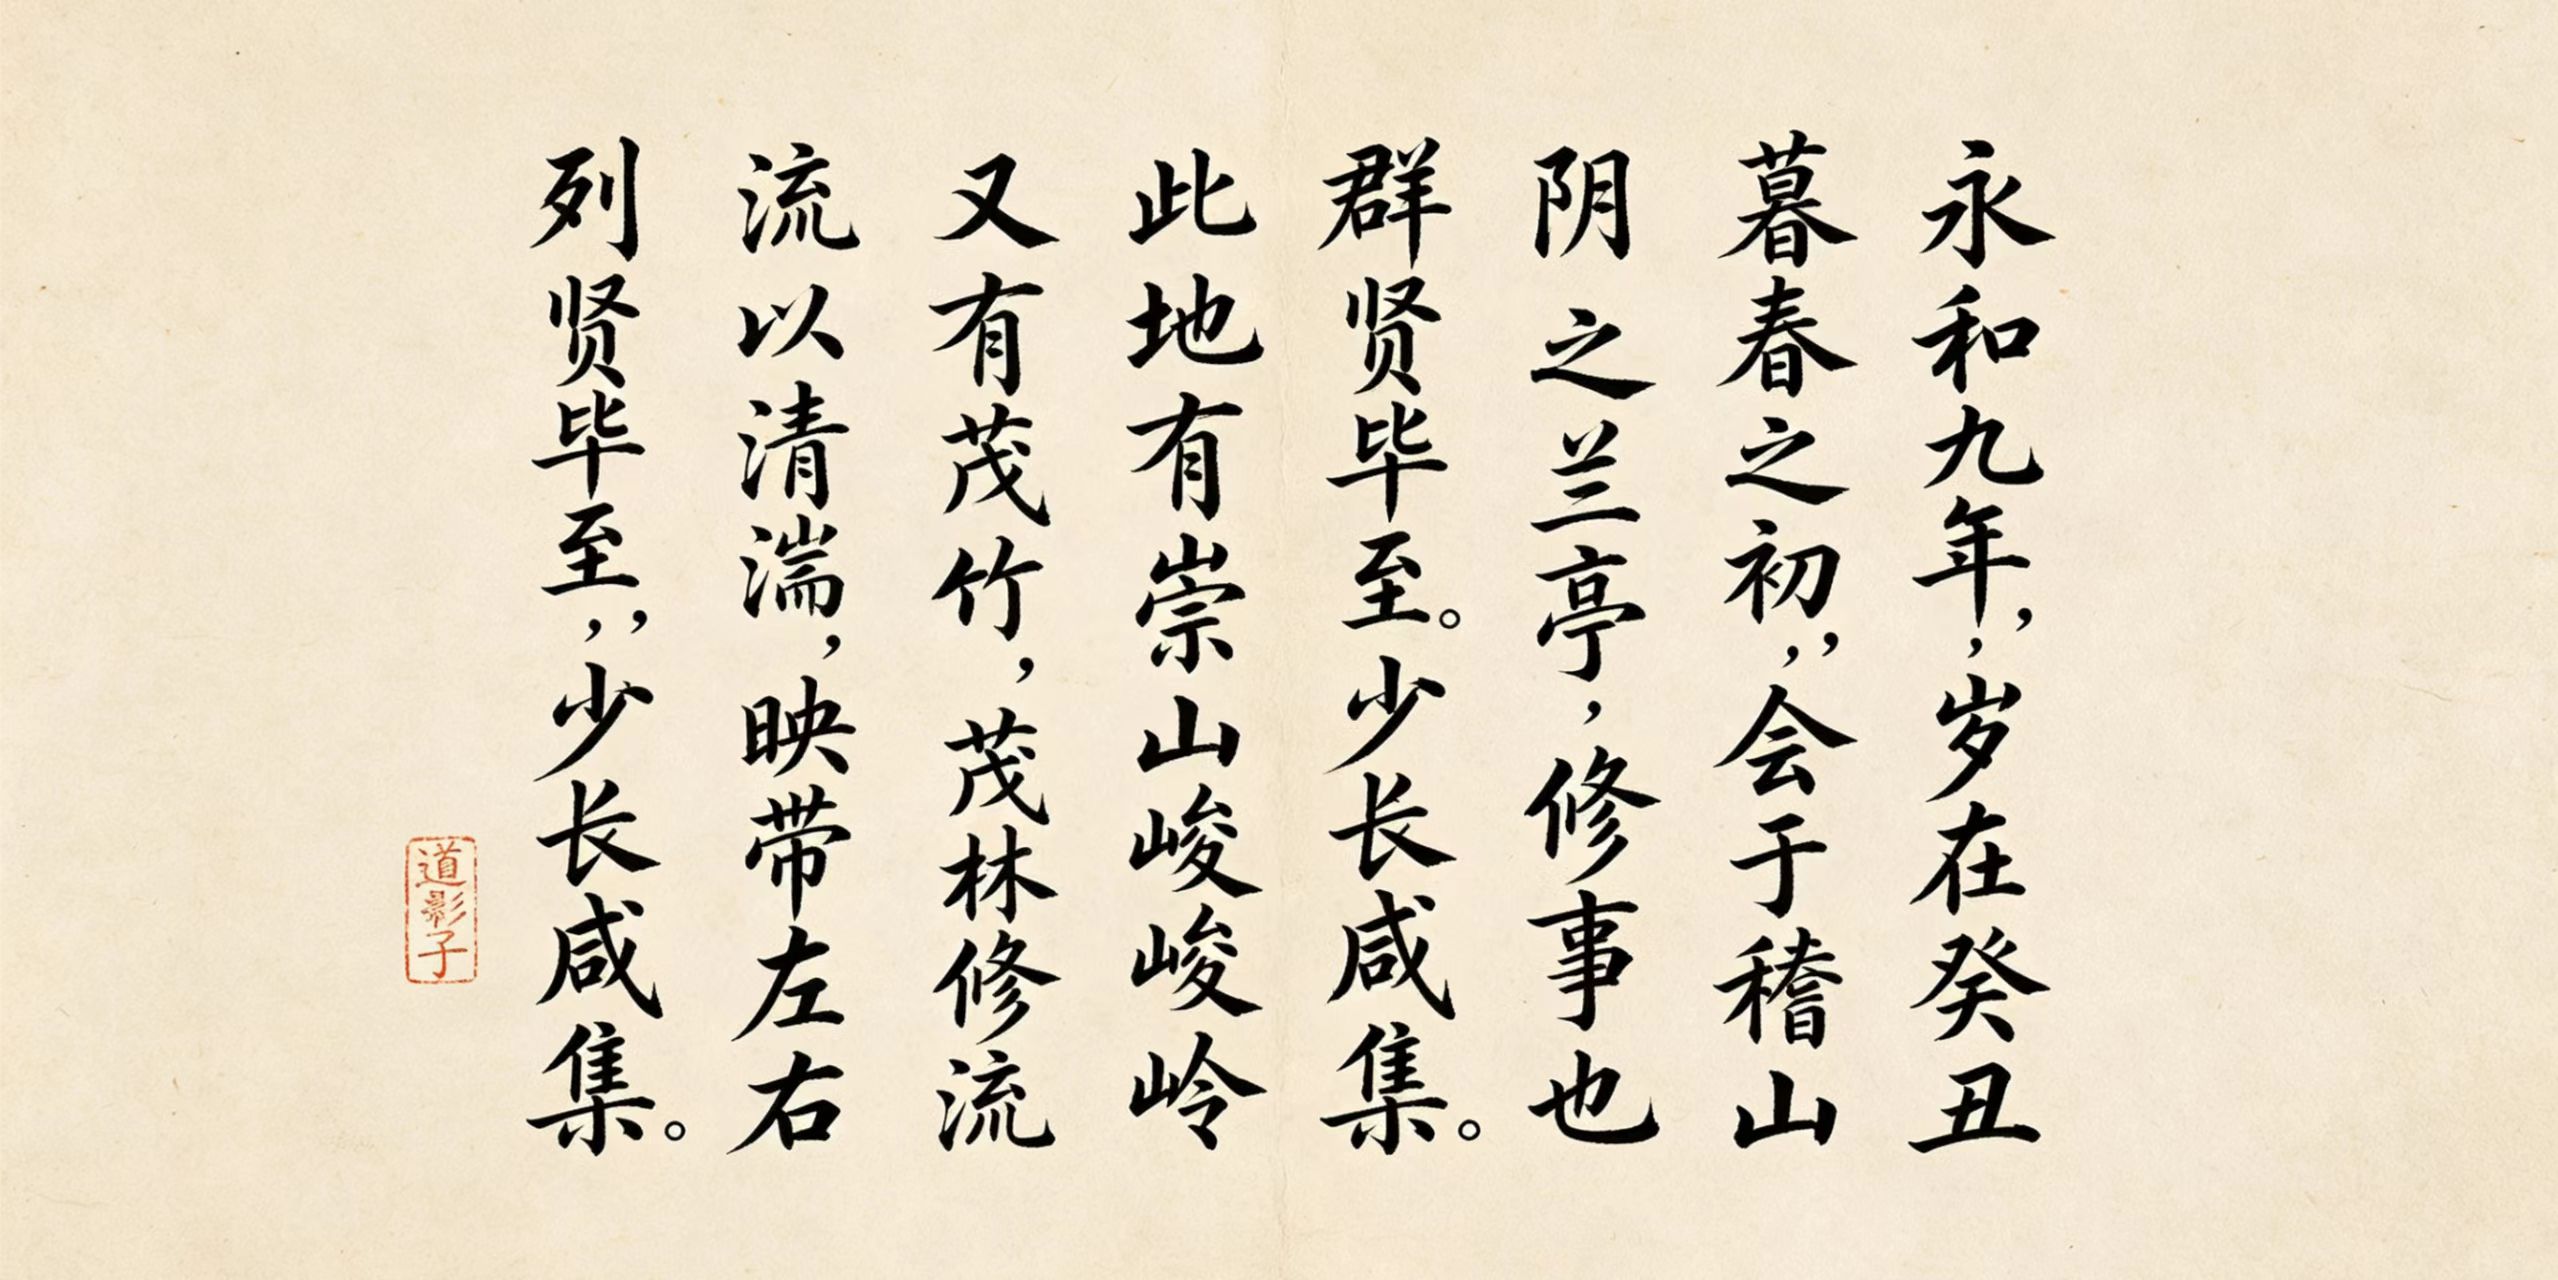 永和九年，，岁在癸丑
暮春之初，，会于稽山
阴之兰亭，修事也
群贤毕至。少长咸集。
此地有崇山峻峻岭
又有茂竹，茂林修流
流以清湍，映带左右
列贤毕至，，少长咸集。
道影子